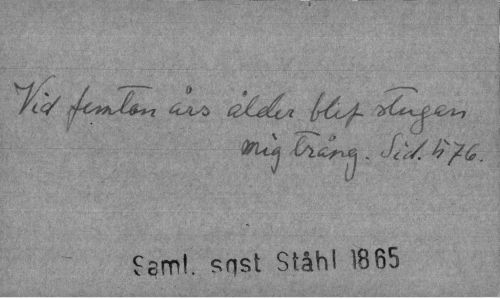 Vid femton års ålder blef stugan
mig trång. Sid. 576.
Saml. sgst Ståhl 1865